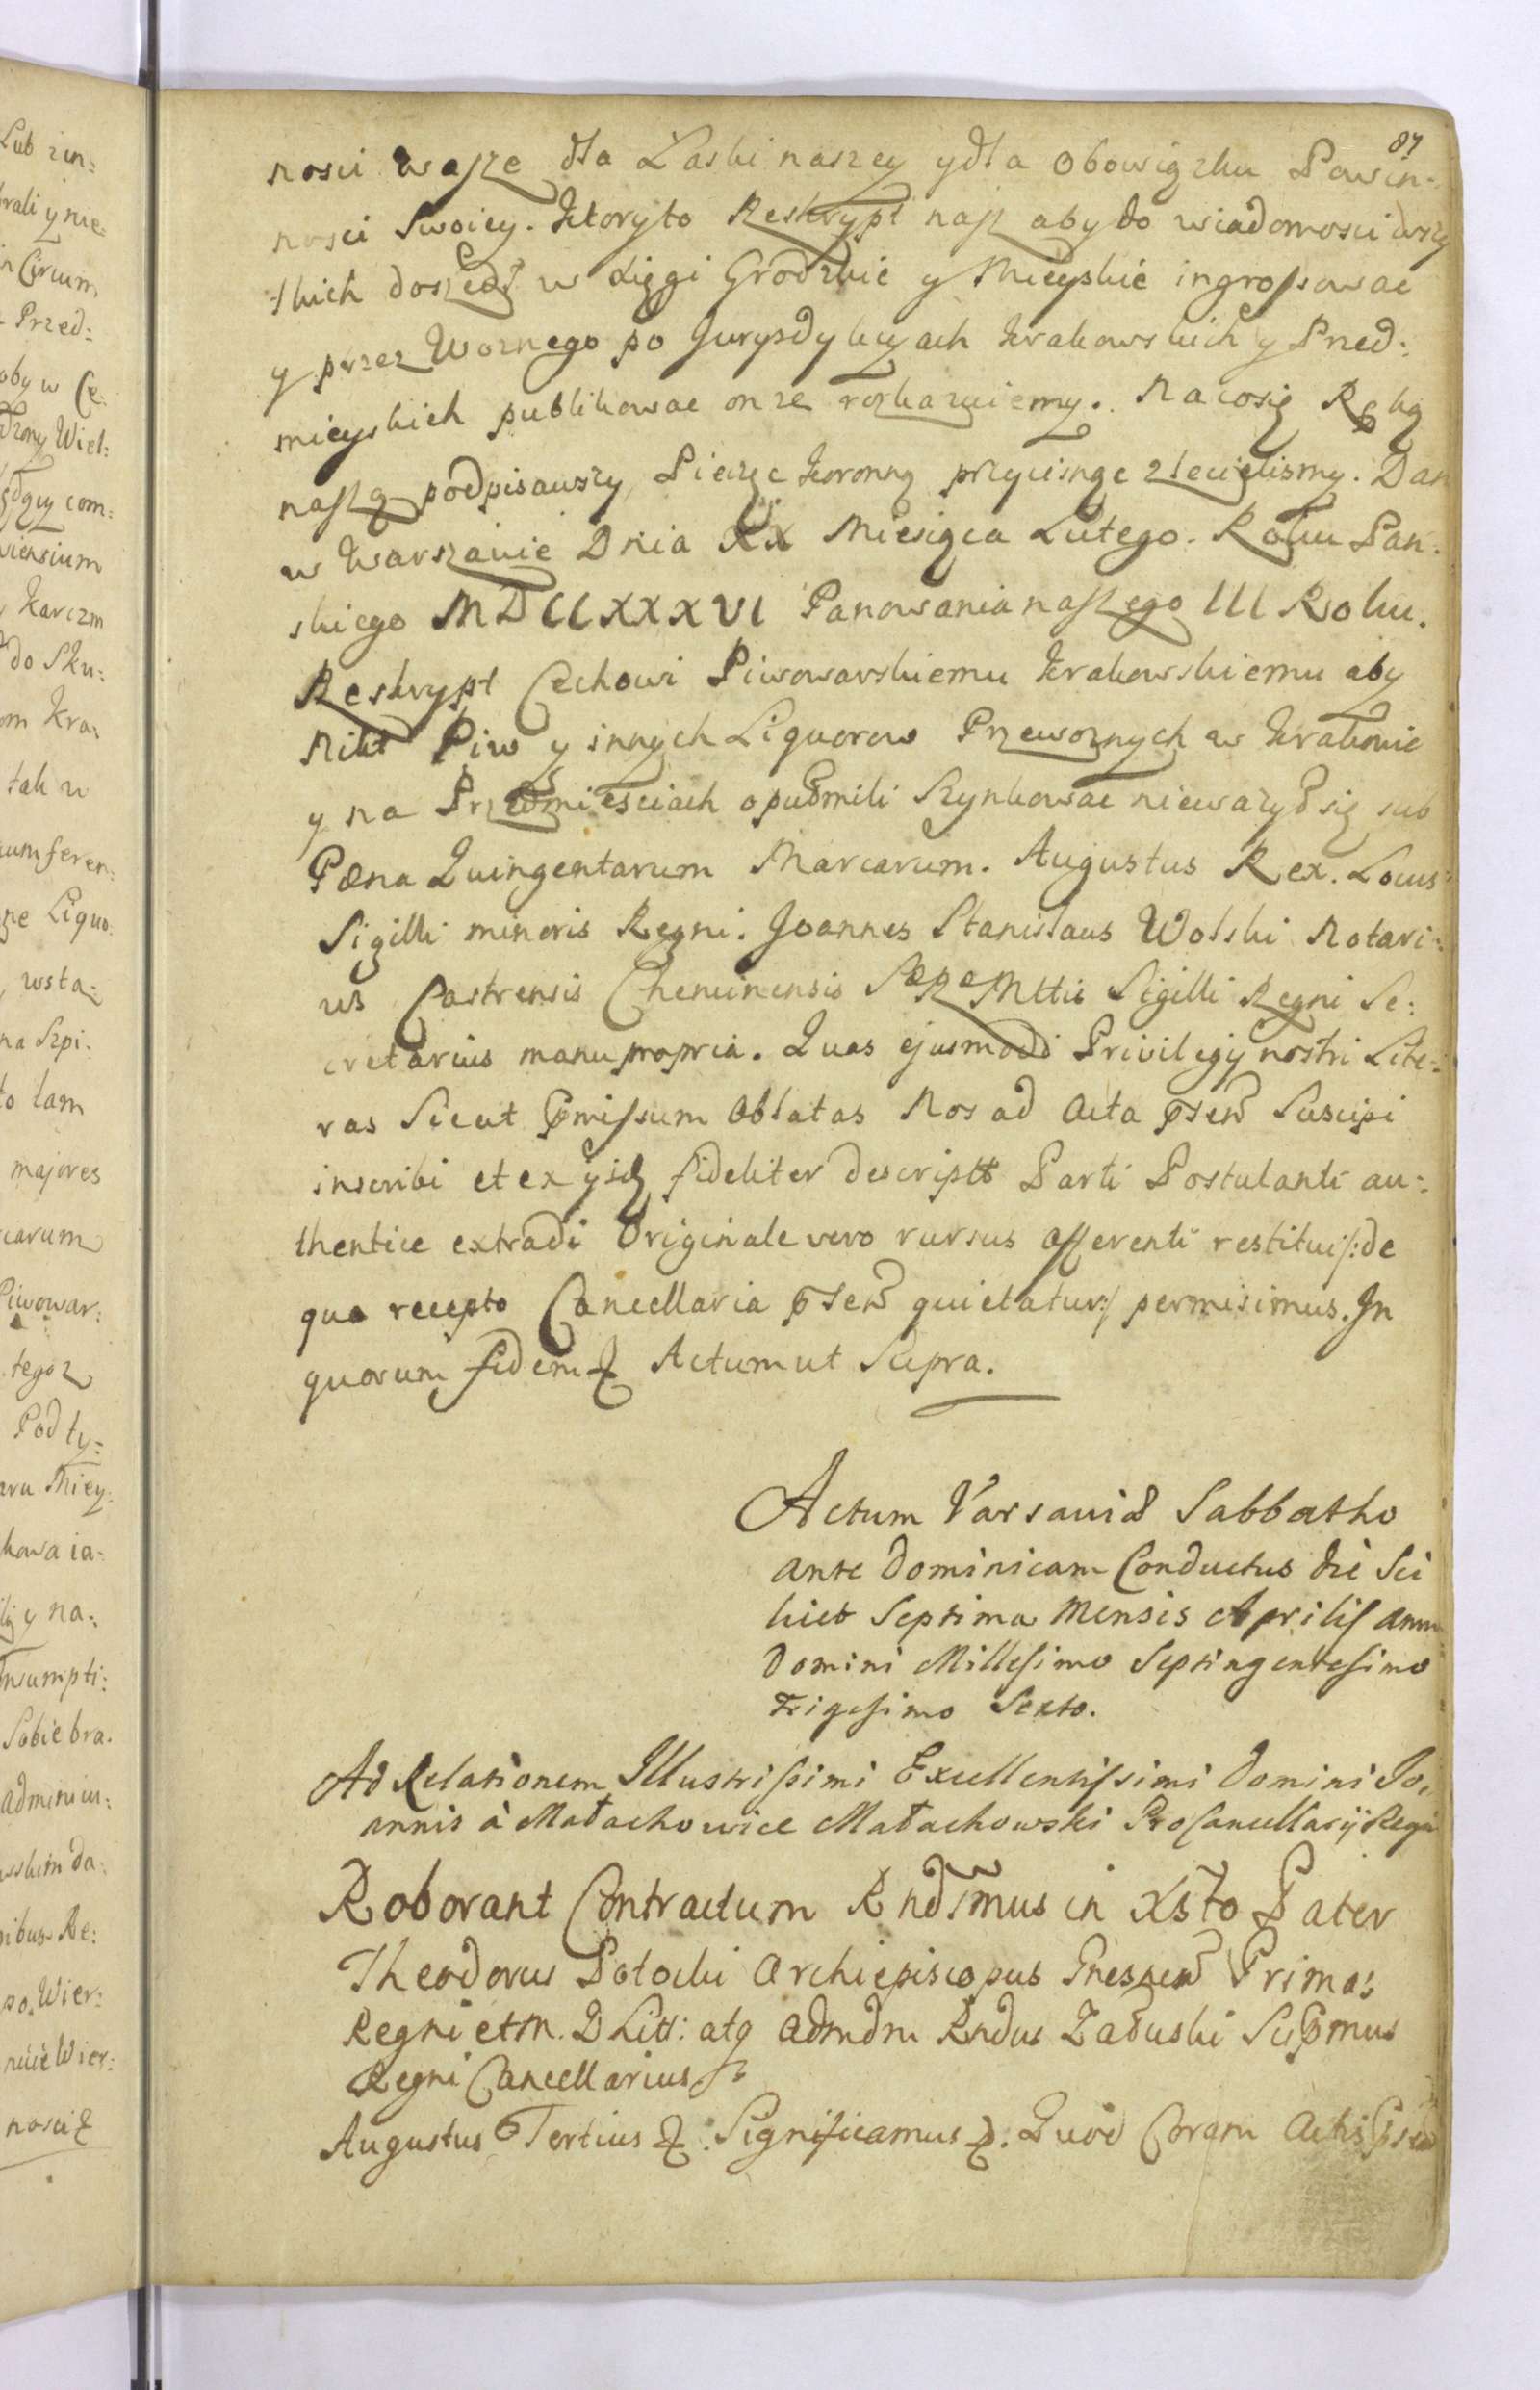 87
nosci wasze dla Łaski naszey y dla Obowiązku Powin:
nosci Swoiey. Ktoryto Reskrypt nasz aby do wiadomosci wszy
:stkich doszedł w Xięgi Grodzkie y Mieyskie ingrossowac
y przez Woznego po Jurysdykcyach Krakowskich y Przed:
mieyskich publikowac onze rozkazuiemy. Na co się Ręką
naszą podpisawszy, Pieczęc Koronną przycisnąc zlecielismy. Dan
w Warszawie Dnia XX Miesiąca Lutego. Roku Pan:
skiego MDCCXXXVI Panowania naszego III Roku.
Reskrypt Cechowi Piwowarskiemu Krakowskiemu aby
Nikt Piw y innych Liquorow Przewoznych w Krakowie
y na Przedmiesciach o puł mili Szynkowac niewazył się sub
Pœna Quingentarum Marcarum. Augustus Rex. Locus
Sigilli minoris Regni. Joannes Stanislaus Wolski Notari:
us Castrensis Chencinensis SæRæMttis Sigilli Regni Se:
cretarius manu propria. Quas ejusmodi Privilegij nostri Lite:
ras Sicut pmissum Oblatas Nos ad Acta psen Suscipi
inscribi et ex ijsq fideliter descriptt Parti Postulanti au:
thentice extradi Originale vero rursus Offerenti restitui /:de
quo recepto Cancellaria psen quietatur:/ permisimus. In
quorum fidem & Actum ut Supra.
Actum Varsaviæ Sabbatho
ante Dominicam Conductus die Sci
licet Septima Mensis Aprilis Anno
Domini Millesimo Septingentesimo
Trigesimo Sexto.
Ad Relationem Illustrissimi Excellentissimi Domini Jo:
annis à Małachowice Małachowski ProCancellarij Regni
Roborant Contractum Rndsmus in Xsto Pater
Theodorus Potocki Archiepiscopus Gnesnen Primas
Regni et M. D Litt: atq Admdm Rndus Załuski Supmus
Regni Cancellarius
Augustus Tertius &. Significamus &. Quod Coram Actis psen